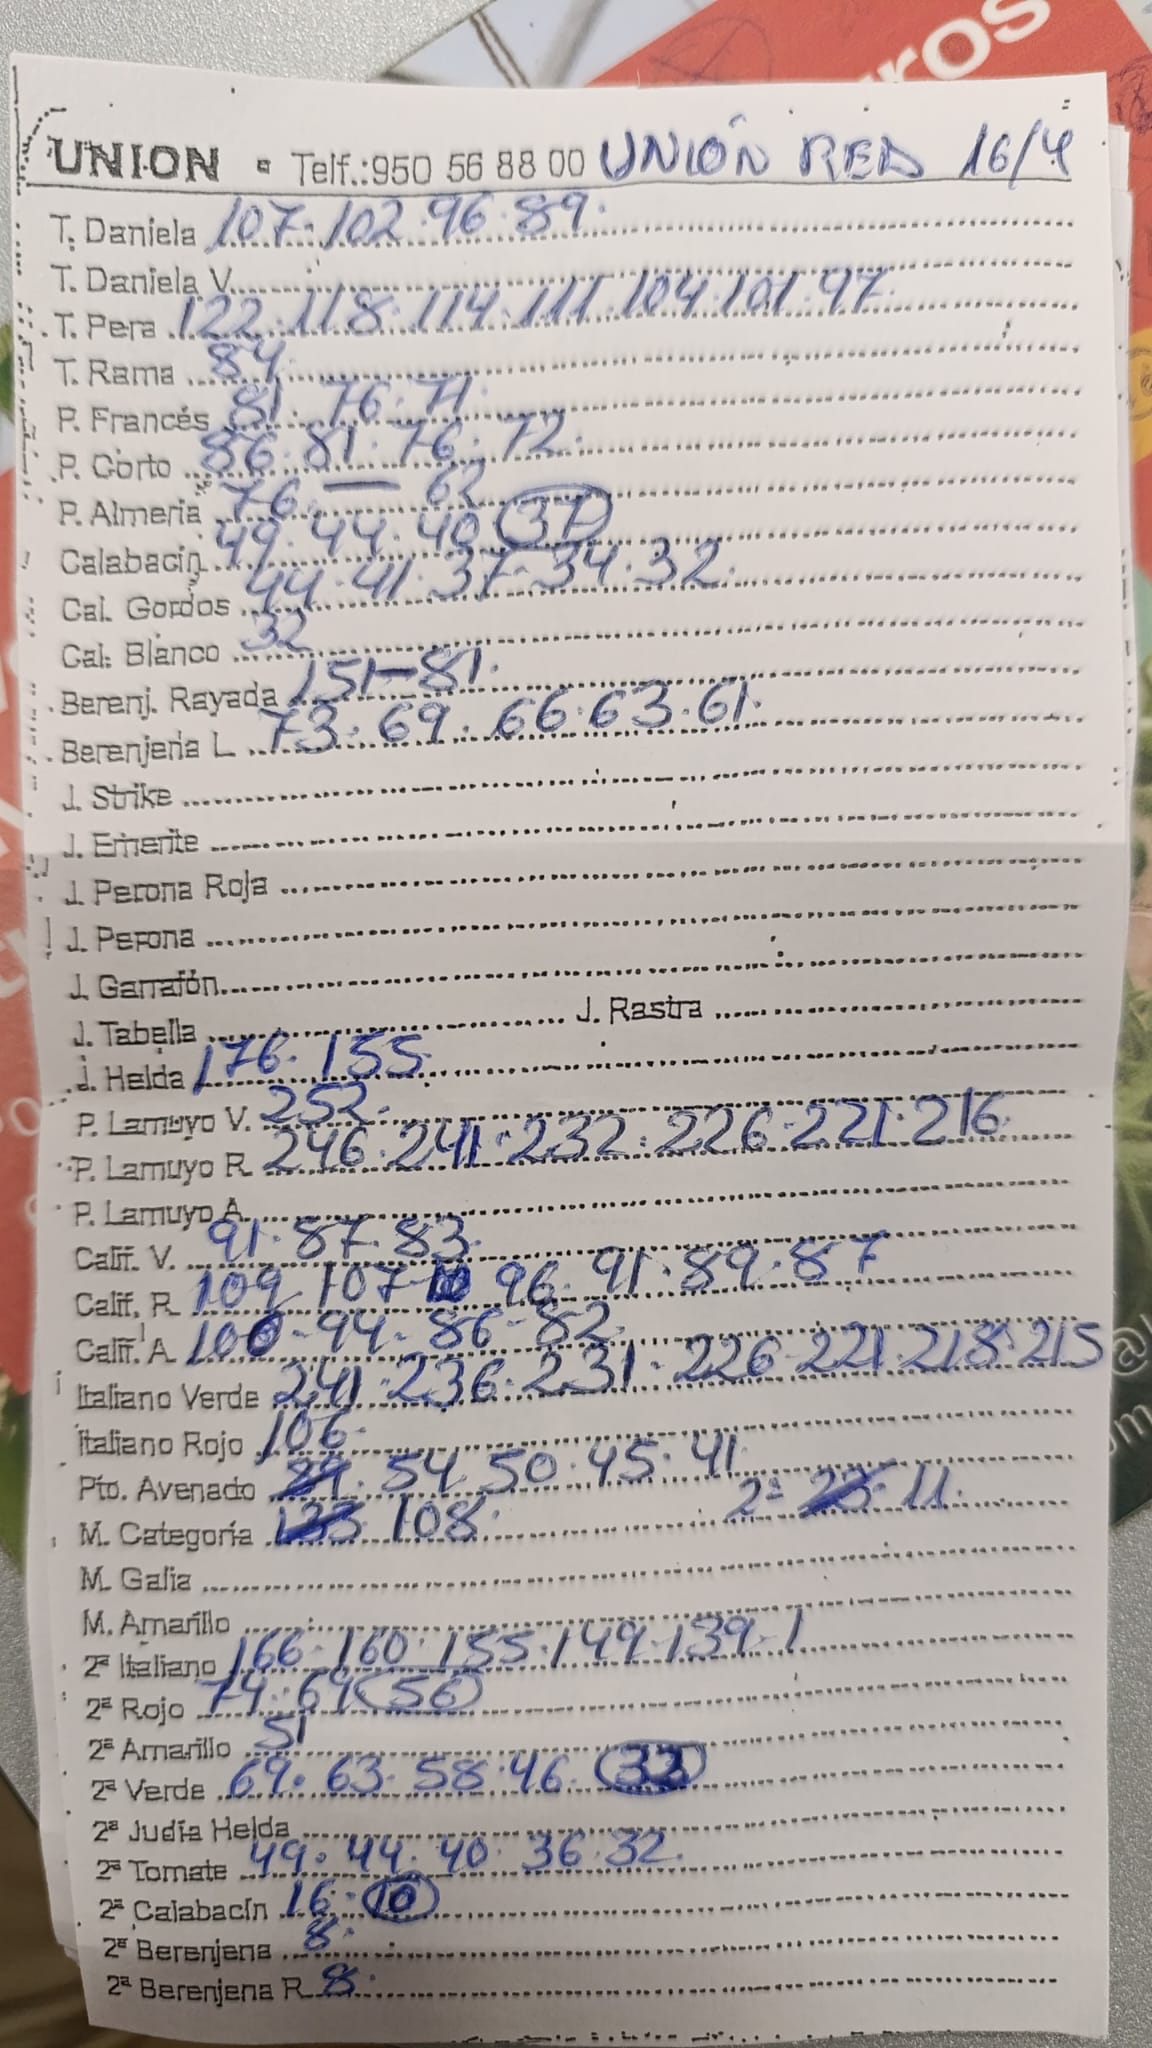 ros
UNION - Telf.:950 56 88 00 UNIÓN RED 16/4
T. Daniela 107. 102. 96. 89.
T. Daniela V.
T. Pera 122. 118. 114. 111. 104. 101. 97.
T. Rama 84.
P. Francés 81. 76. 71.
P. Corto 86. 81. 76. 72.
P. Almeria 76. — 62
Calabacín 49. 44. 40 37
Cal. Gordos 44. 41. 37. 34. 32.
Cal. Blanco 32
Berenj. Rayada 151-81.
Berenjena L 73. 69. 66. 63. 61.
J. Strike
J. Emerite
J. Perona Roja
J. Perona
J. Garrafón
J. Tabella J. Rastra
J. Helda 176. 155.
P. Lamuyo V. 252.
P. Lamuyo R 246. 241. 232. 226. 221. 216.
P. Lamuyo A
Calif. V. 91. 87. 83.
Calif. R 109 107- 96. 91. 89. 87
Calif. A 100- 94- 86- 82.
Italiano Verde 241. 236. 231. 226 221. 218. 215
Italiano Rojo 106.
Pto. Avenado 54 50. 45. 41
M. Categoría 108. 2ª 11.
M. Galia
M. Amarillo
2ª Italiano 166. 160. 155. 149. 139. 1
2ª Rojo 74. 69 56
2ª Amarillo 51
2ª Verde 69. 63. 58. 46. 33
2ª Judía Helda
2ª Tomate 49. 44. 40. 36. 32.
2ª Calabacín 16. 10
2ª Berenjena 8.
2ª Berenjena R 8.